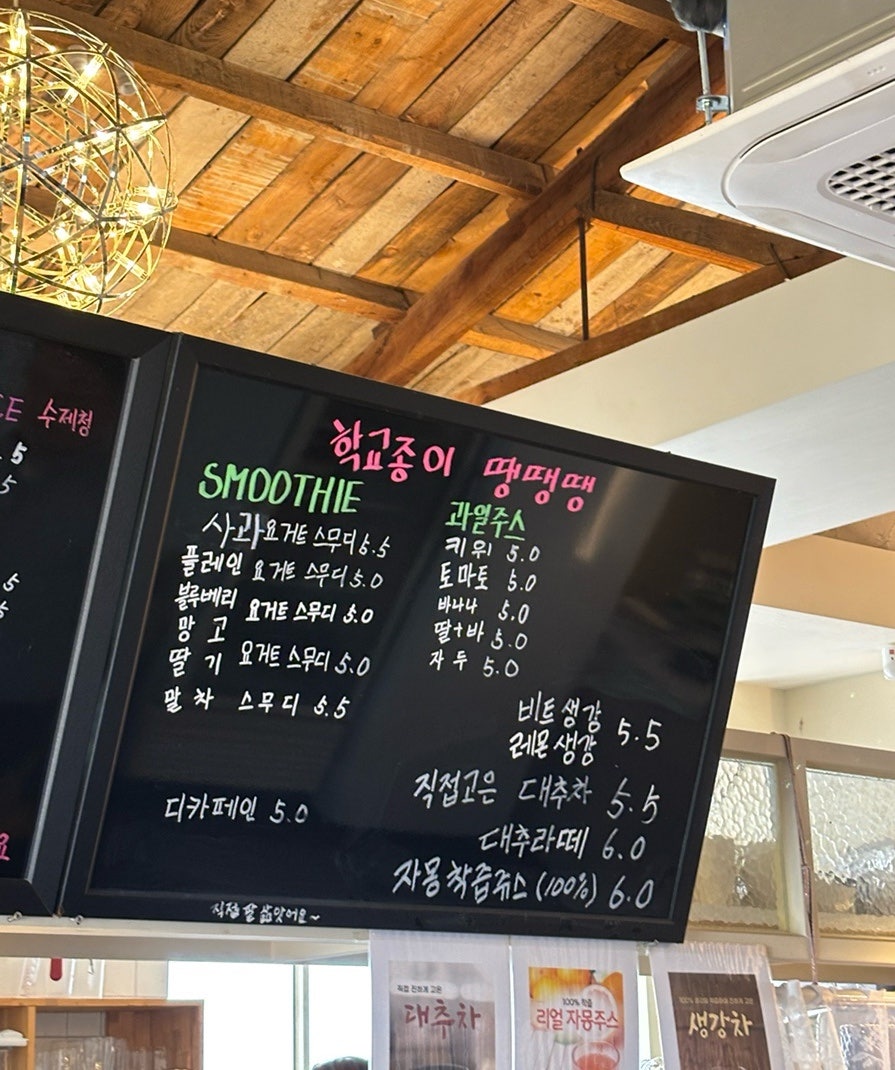 CE 수제청
.5
5
5
5
요
학교종이 땡땡땡
SMOOTHIE
사과요거트 스무디 5.5
플레인 요거트 스무디 5.0
블루베리 요거트 스무디 5.0
망고
딸기 요거트 스무디 5.0
말차 스무디 5.5
디카페인 5.0
과일주스
키위 5.0
토마토 5.0
바나나 5.0
딸+바 5.0
자두 5.0
비트생강
레몬생강 5.5
직접고은 대추차 5.5
대추라떼 6.0
자몽착즙쥬스(100%) 6.0
직접 팥
직접 진하게 고은
대추차
100% 착즙
리얼 자몽주스
생강차